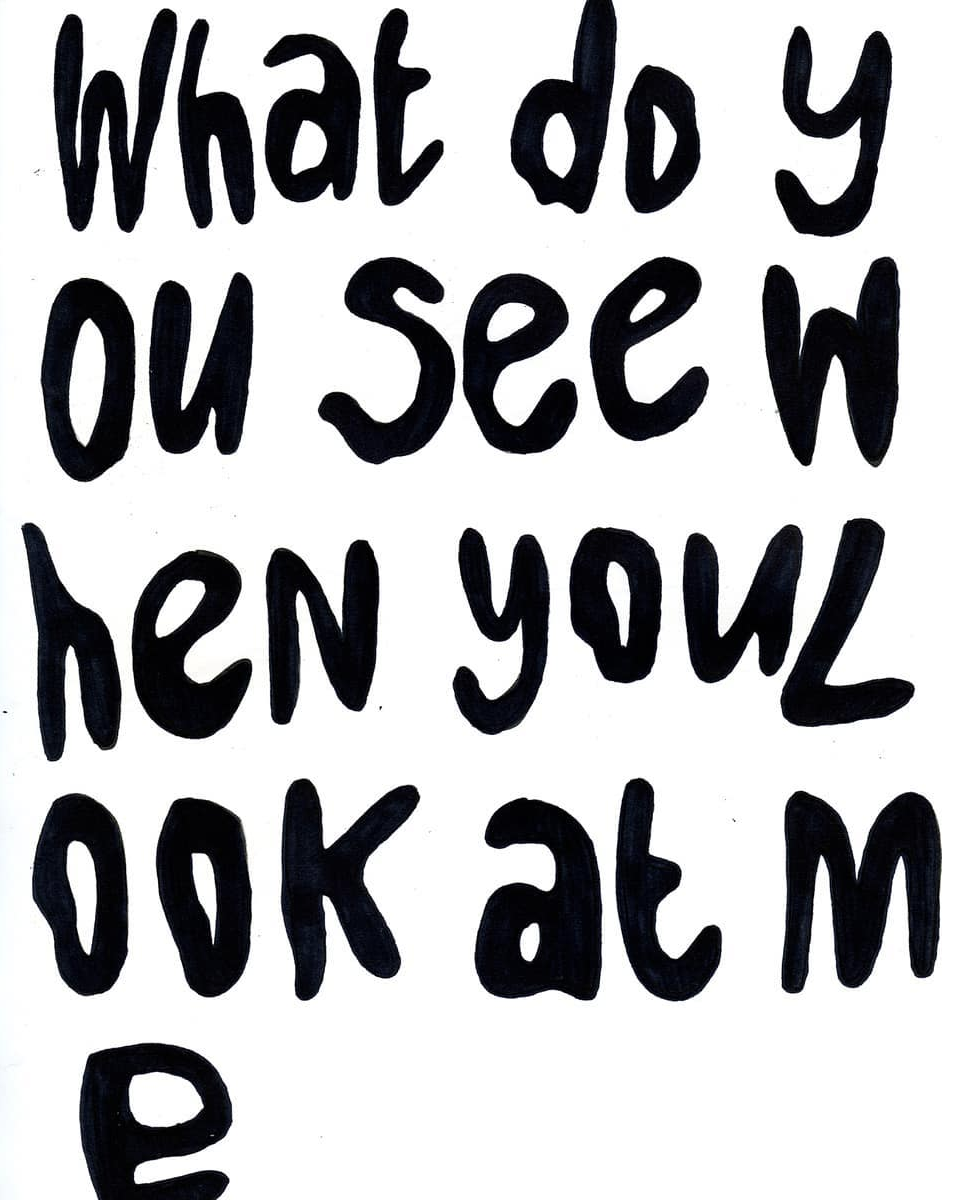 What do y
ou see w
heN youL
ooK at M
e